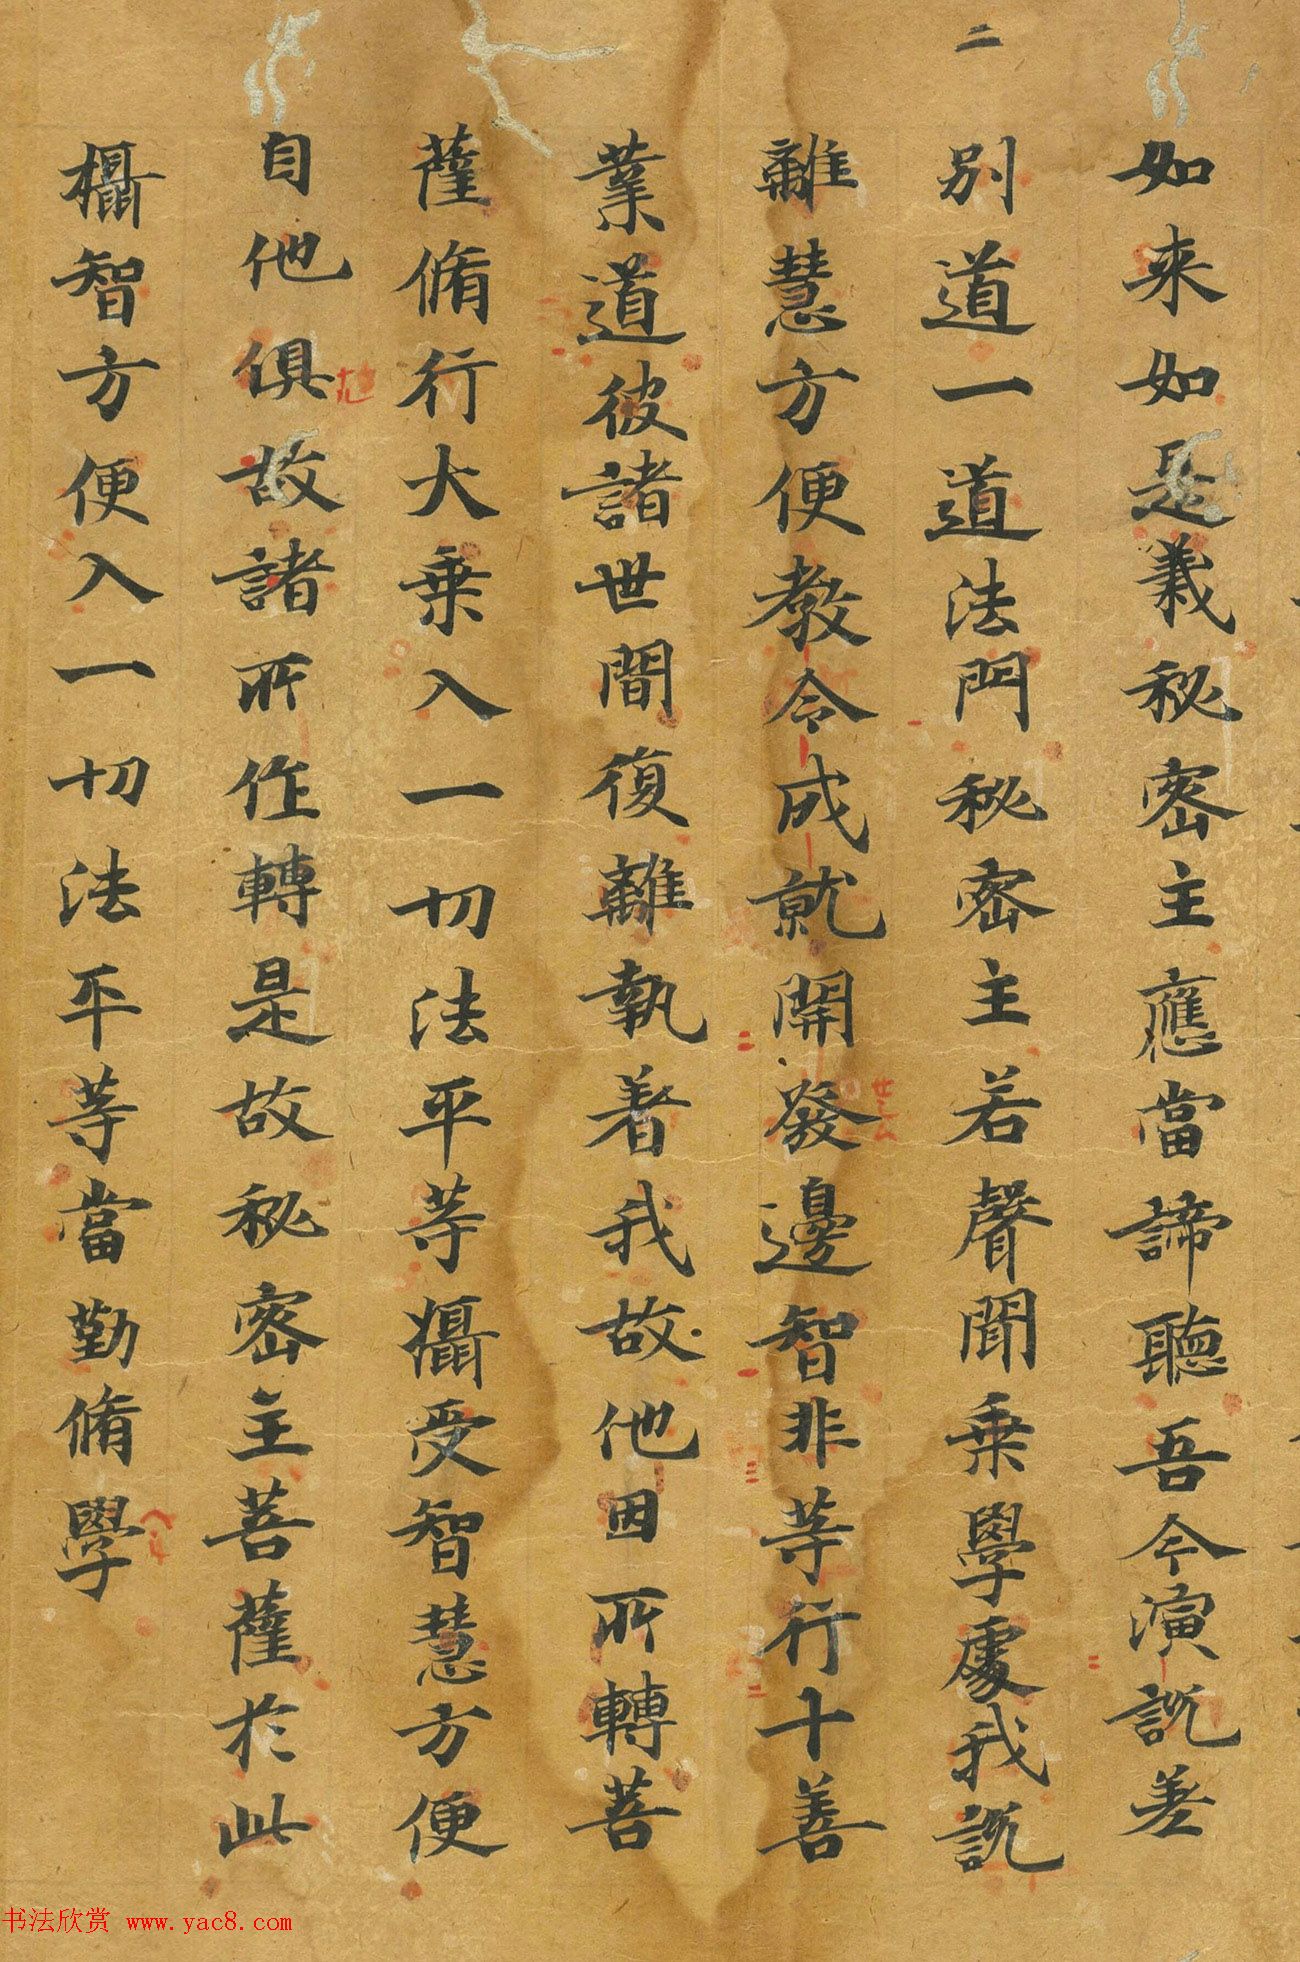 二
如来如是義秘密主應當諦聽吾今演說差
別道一道法門秘密主若聲聞乗學處我說
離慧方便教令成就開發邊智非等行十善
業道彼諸世間復離執著我故他因所轉菩
薩脩行大乗入一切法平等攝受智慧方便
自他俱故諸所作轉是故秘密主菩薩於此
攝智方便入一切法平等當勤脩學
书法欣赏 www.yac8.com